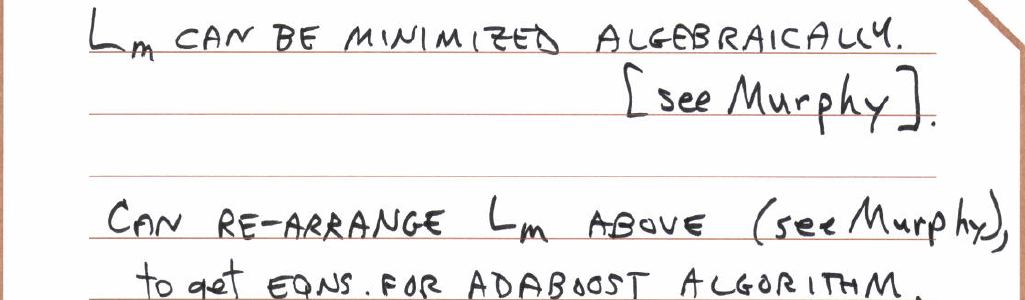 Lm CAN BE MINIMIZED ALGEBRAICALLY.
[see Murphy].
CAN RE-ARRANGE Lm ABOVE (see Murphy),
to get EQNS. FOR ADABOOST ALGORITHM.